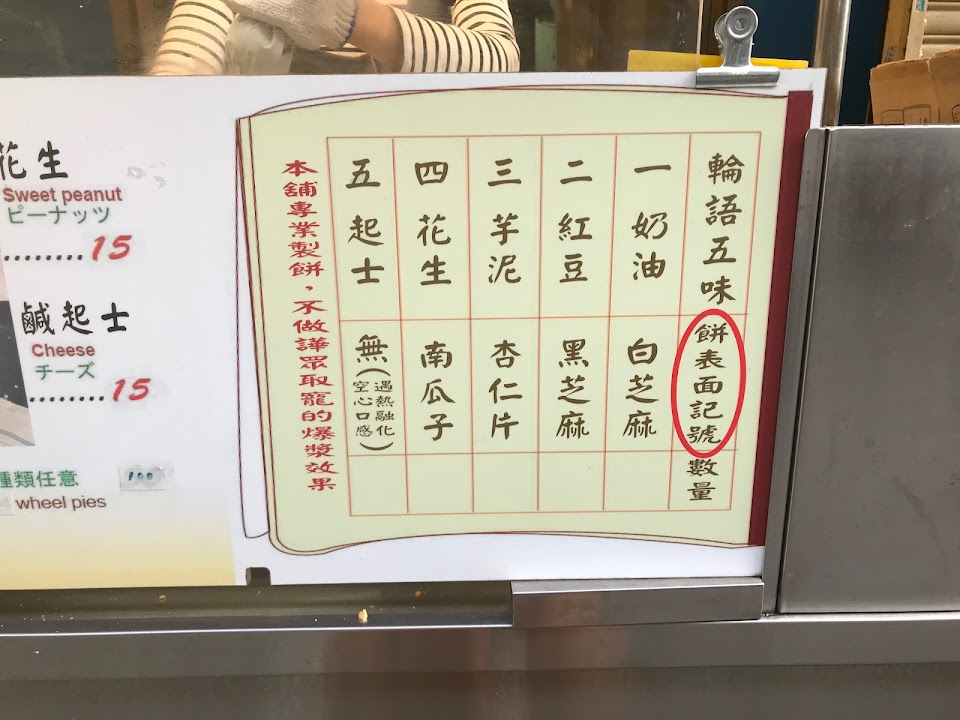 花生
Sweet peanut
ピーナッツ
........15
鹹起士
Cheese
チーズ
........15
種類任意 100
4 wheel pies
輪語五味 餅表面記號 數量
一奶油 白芝麻
二紅豆 黑芝麻
三芋泥 杏仁片
四花生 南瓜子
五起士 無(遇熱融化空心口感)
本舖專業製餅，不做譁眾取寵的爆漿效果